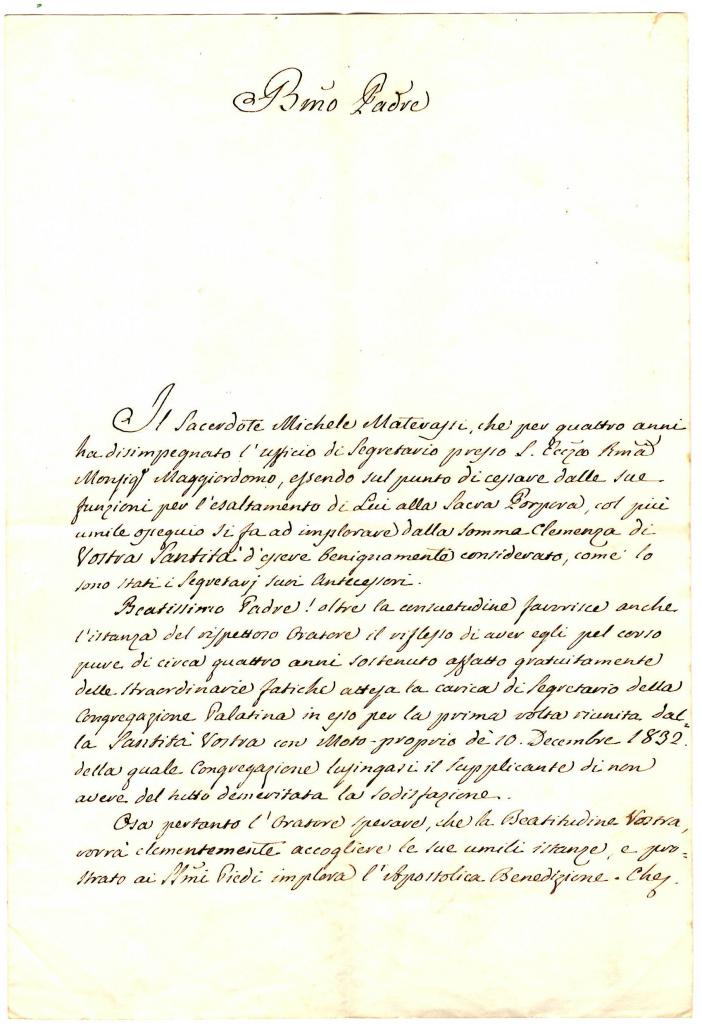 Bm̃o Padre
Il Sacerdote Michele Materassi, che per quattro anni
ha disimpegnato l'ufficio di Segretario presso S. Ecc̃za Rm̃a
Monsig.r Maggiordomo, essendo sul punto di cessare dalle sue
funzioni per l'esaltamento di Lui alla Sacra Porpora, col più
umile ossequio si fa ad implorare dalla somma Clemenza di
Vostra Santità d'essere benignamente considerato, come lo
sono stati i Segretarj suoi Antecessori.
Beatissimo Padre! oltre la consuetudine favorisce anche
l'istanza del rispettoso Oratore il riflesso di aver egli pel corso
pure di circa quattro anni sostenuto affatto gratuitamente
delle straordinarie fatiche attesa la carica di Segretario della
Congregazione Palatina in esso per la prima volta riunita dal=
la Santità Vostra con Moto-proprio dè 10. Decembre 1832.
della quale Congregazione lusingasi il supplicante di non
avere del tutto demeritata la sodisfazione.
Osa pertanto l'Oratore sperare, che la Beatitudine Vostra,
vorrà clementemente accogliere le sue umili istanze, e pro=
strato ai SSm̃i Piedi implora l'Apostolica Benedizione. Che